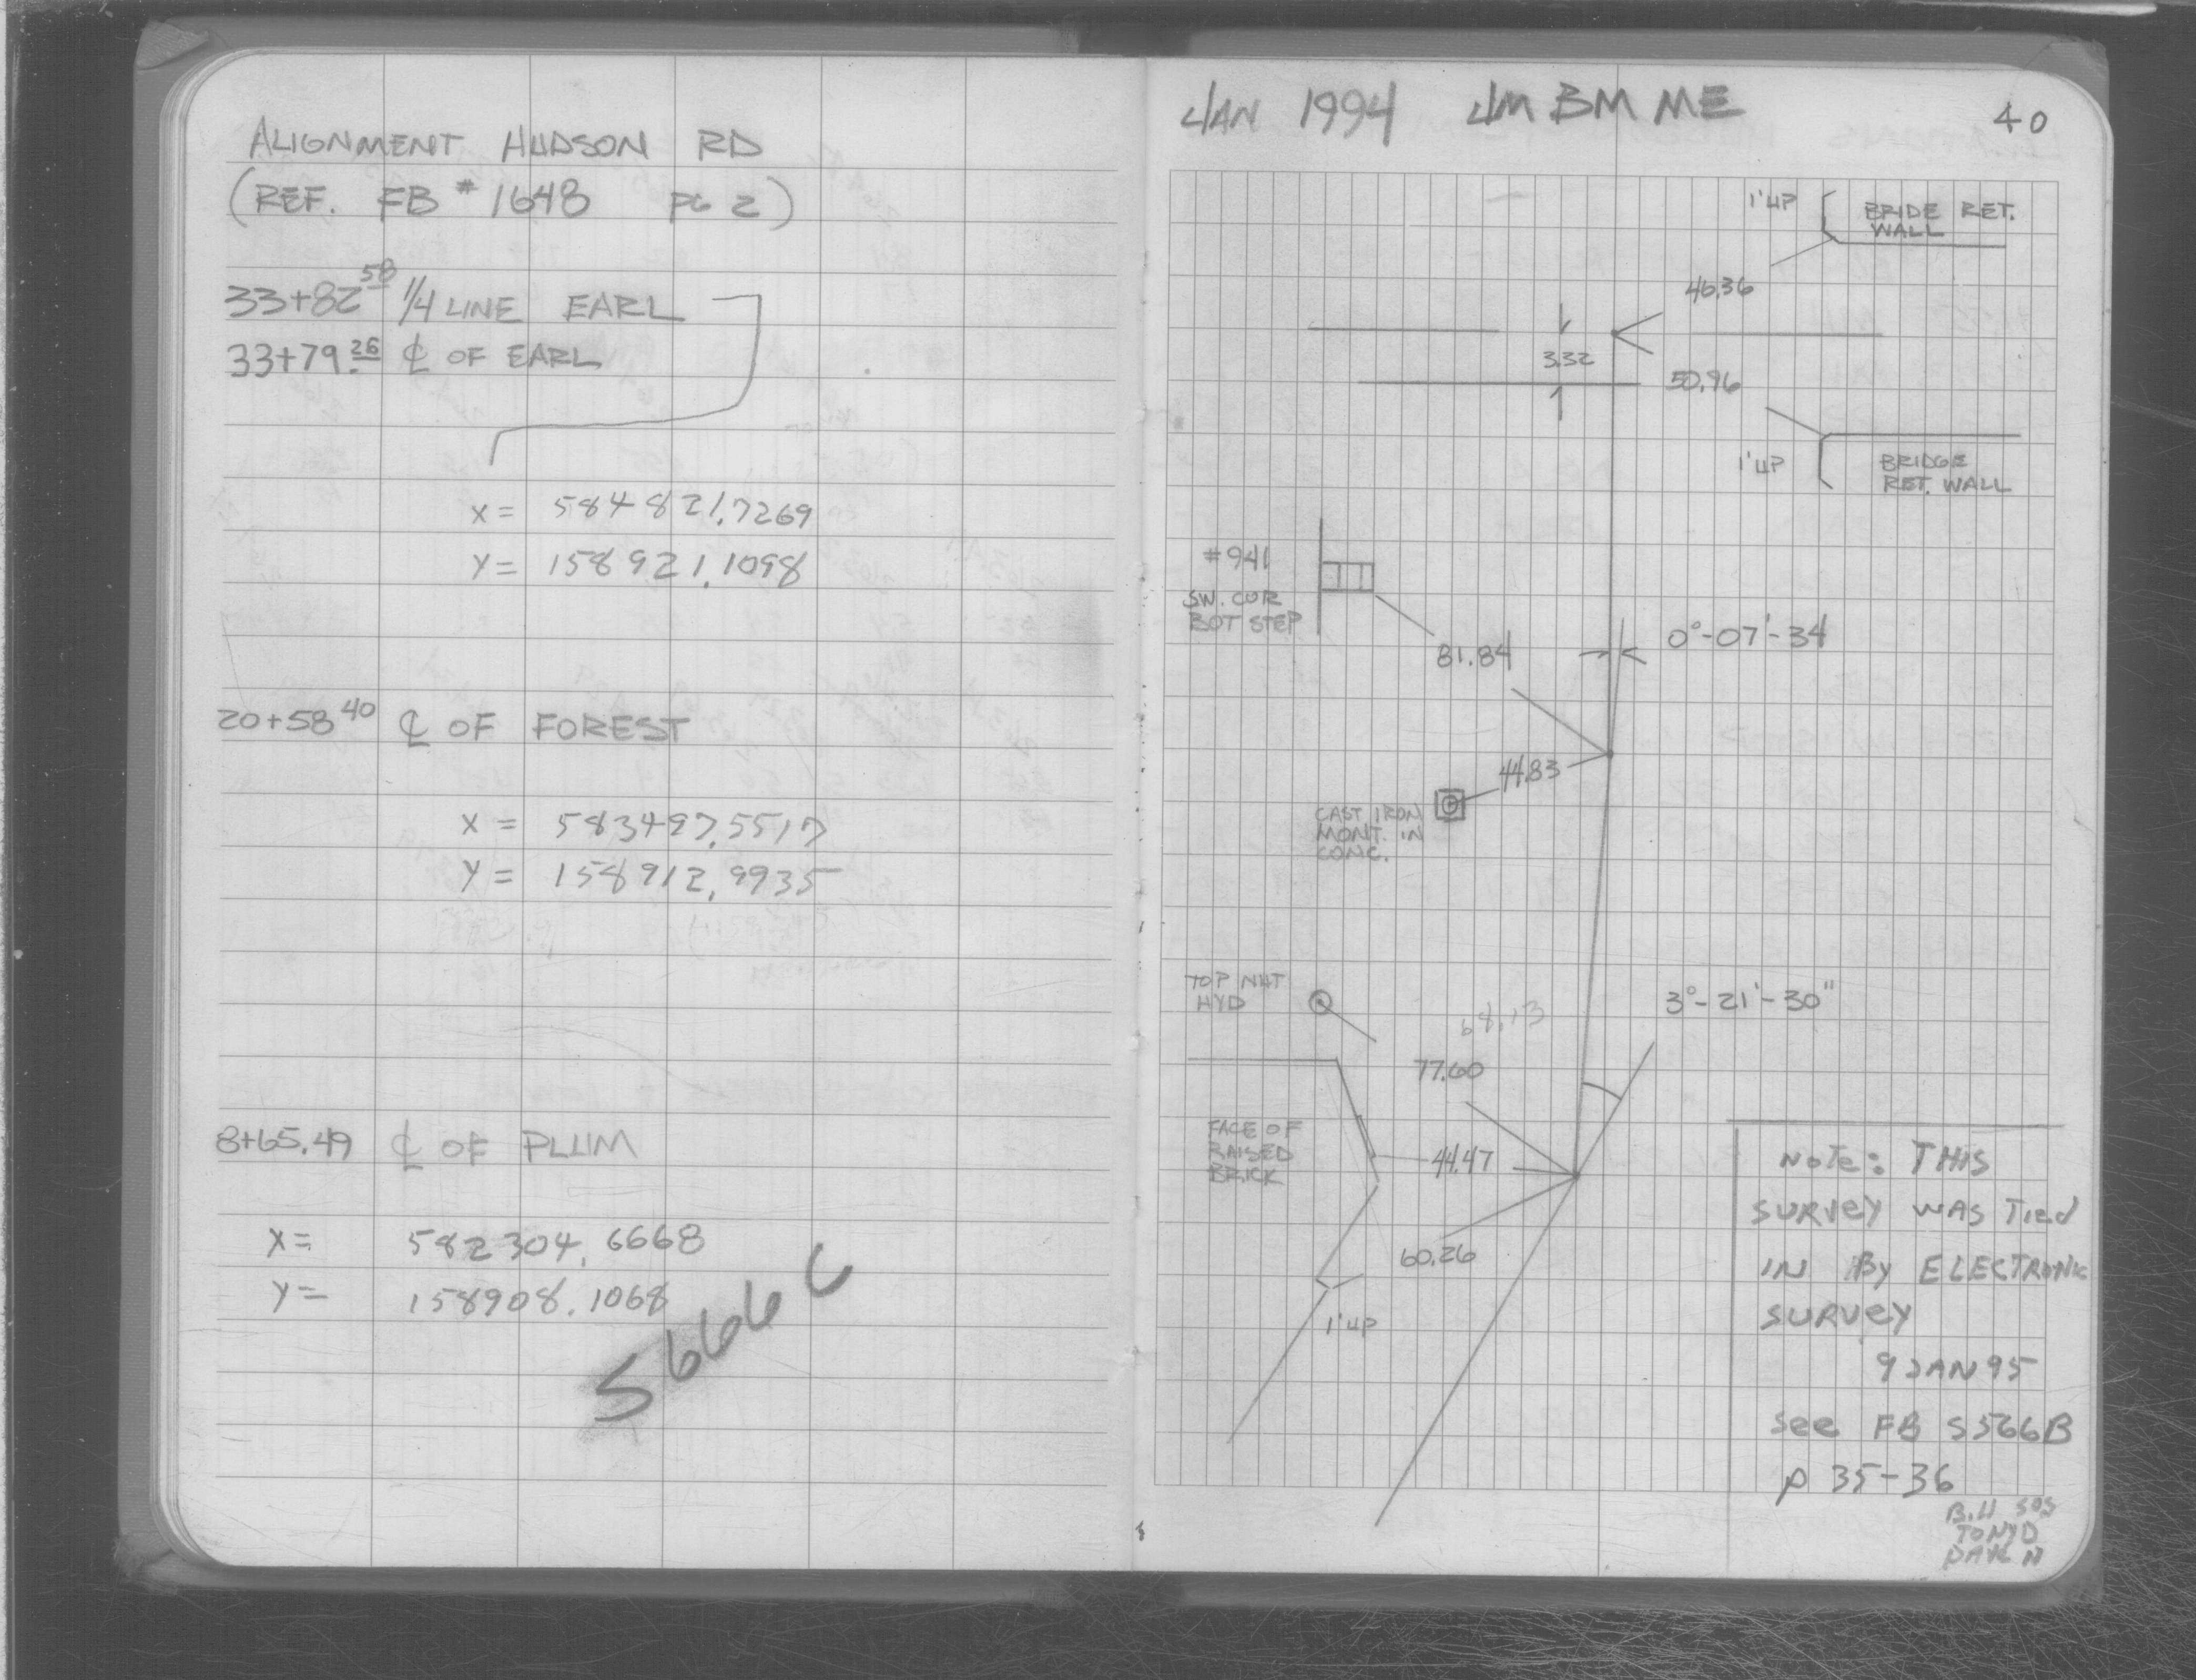 ALIGNMENT HUDSON RD
(REF. FB #1648 PG 2)
33+82 58 1/4 LINE EARL
33+79.26 ℄ OF EARL
X = 584821.7269
Y = 158921.1098
20+58 40 ℄ OF FOREST
X = 583497.5517
Y = 158912.9935
8+65.49 ℄ OF PLUM
X = 582304.6668
Y = 158908.1068
5666 C
JAN 1994 JM BM ME
40
1'UP
BRIDE RET.
WALL
46.36
3.32
50.96
1'UP
BRIDGE
RET. WALL
#941
SW. COR
BOT STEP
81.84
0°-07'-34
44.83
CAST IRON
MONT. IN
CONC.
TOP NUT
HYD
68.13
3°-21'-30"
77.60
FACE OF
RAISED
BRICK
44.47
60.26
1'UP
NOTE: THIS
SURVEY WAS TIED
IN BY ELECTRONIC
SURVEY
9 JAN 95
SEE FB 5566B
P 35-36
TONY D